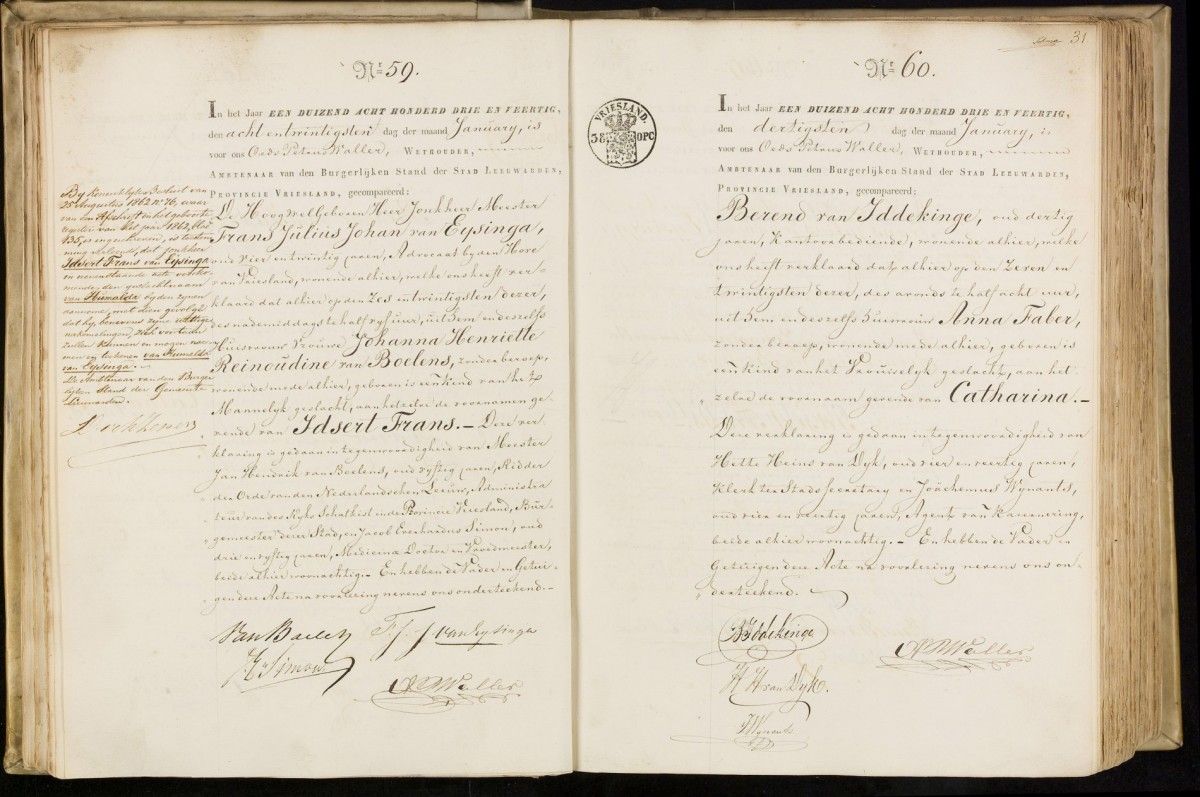 Nr. 59.
In het Jaar EEN DUIZEND ACHT HONDERD DRIE EN VEERTIG,
den acht en twintigsten dag der maand January, is
voor ons Oeds Petrus Waller, WETHOUDER,
AMBTENAAR van den Burgerlijken Stand der STAD LEEUWARDEN,
PROVINCIE VRIESLAND, gecompareerd:
De Hoog Wel Geboren Heer Jonkheer Meester
Frans Julius Johan van Eysinga,
oud vier en twintig jaren, Advocaat by den Hove
van Vriesland, wonende alhier, welke ons heeft ver-
klaard dat alhier op den Zes en twintigsten dezer,
des nademiddags te half vyf uur, uit hem en deszelfs
Huisvrouw Vrouwe Johanna Henriëtte
Reinoudine van Boelens, zonder beroep,
wonende mede alhier, geboren is een kind van het
Mannelyk geslacht, aan hetzelve de voornamen ge-
vende van Idsert Frans. – Deze ver
klaring is gedaan in tegenwoordigheid van Meester
Jan Hendrik van Boelens, oud vyftig jaren, Ridder
der Orde van den Nederlandschen Leeuw, Administra
teur van des Ryks Schatkist in de Provincie Vriesland, Bur-
gemeester dezer Stad, en Jacob Everhardus Simon, oud
drie en vyftig jaren, Medicinæ Doctor en Vroedmeester,
beide alhier woonachtig. – En hebben de Vader en Getui-
gen deze Acte na voorlezing nevens ons onderteekend. –
Van Boelens F. J. J. van Eysinga
Simon
OPWaller
By Koninklyk Besluit van
25 Augustus 1862 No. 76, waar
van een Afschrift in het geboorte
register van het jaar 1862,
135, is ingeschreven, is toestem
ming verleend, dat Jonkheer
Idsert Frans van Eysinga
in nevenstaande acte vermeld
, den geslachtsnaam
van Humalda by den zynen
aanneme, met dien gevolge
dat hy, benevens zyne wettige
nakomelingen, zich voortaan
zullen kunnen en mogen noe
men en teekenen van Humalda
van Eysinga. –
De Ambtenaar van den Burger
lyken Stand der Gemeente
Leeuwarden.
VRIESLAND.
38 OPC
31
Nr. 60.
In het Jaar EEN DUIZEND ACHT HONDERD DRIE EN VEERTIG,
den dertigsten dag der maand January, is
voor ons Oeds Petrus Waller, WETHOUDER,
AMBTENAAR van den Burgerlijken Stand der STAD LEEUWARDEN,
PROVINCIE VRIESLAND, gecompareerd:
Berend van Iddekinge, oud dertig
jaren, Kantoorbediende, wonende alhier, welke
ons heeft verklaard dat alhier op den Zeven en
twintigsten dezer, des avonds te half acht uur,
uit hem en deszelfs Huisvrouw Anna Faber,
zonder beroep, wonende mede alhier, geboren is
een kind van het Vrouwelyk geslacht, aan het
zelve de voornaam gevende van Catharina. –
Deze verklaring is gedaan in tegenwoordigheid van
Hette Heins van Dyk, oud vier en veertig jaren,
Klerk ter Stads Secretary en Joachemus Wynants,
oud vier en veertig jaren, Agent van Kasernering,
beide alhier woonachtig. – En hebben de Vader en
Getuigen deze Acte na voorlezing nevens ons on-
derteekend.
BvIddekinge
OPWaller
H H van Dyk.
JWynants